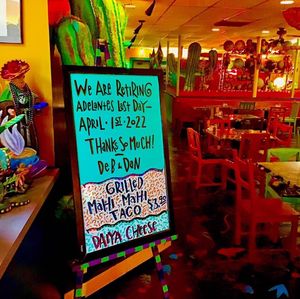 We Are Retiring
Adelantes Last Day—
April 1st 2022
Thanks So Much!
Deb & Don
Grilled
Mahi-Mahi
Taco
Daiya Cheese